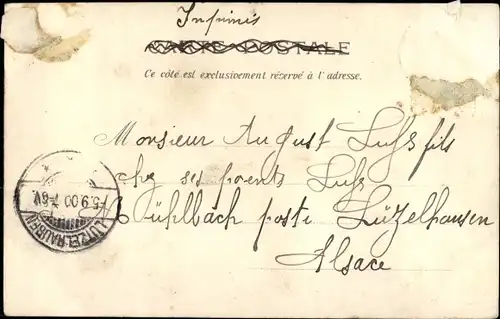 Imprimés
CARTE POSTALE
Ce côté est exclusivement réservé à l'adresse.
Monsieur August Luhs fils
chez ses parents Luhs
Mühlbach poste Lützelhausen
Alsace
LÜTZELHAUSEN
5.9.00 7-8V.